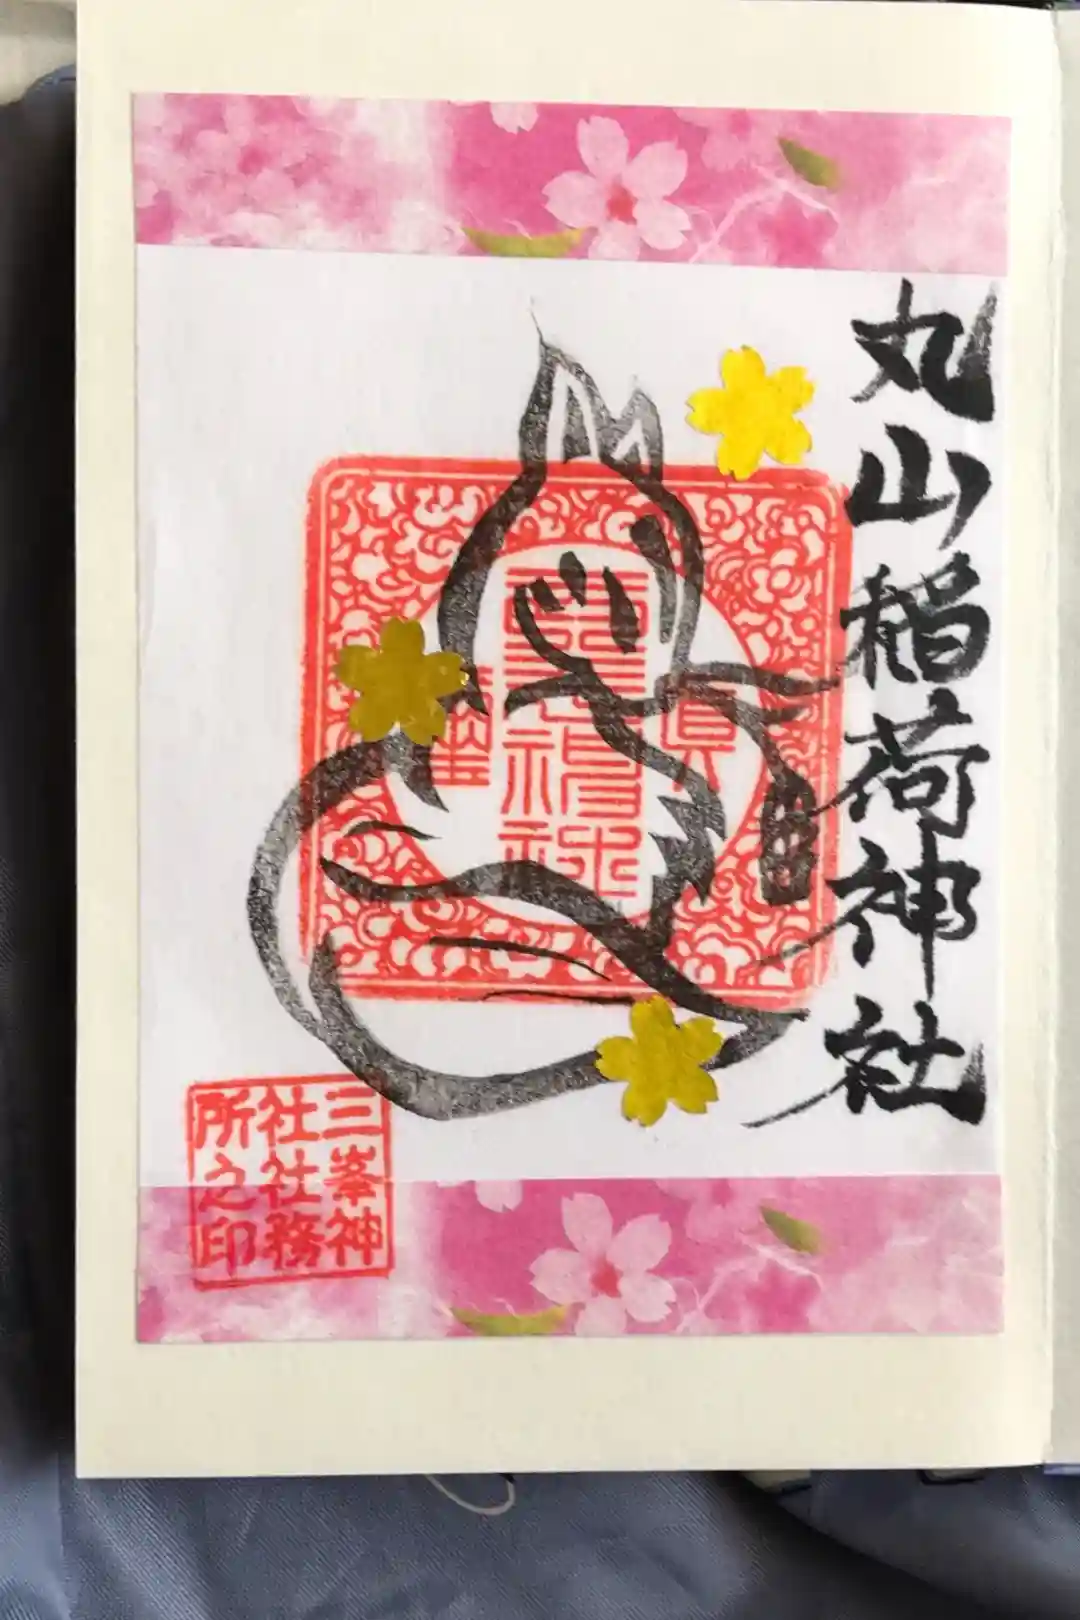 丸山稲荷神社
三峯神
社社務
所之印